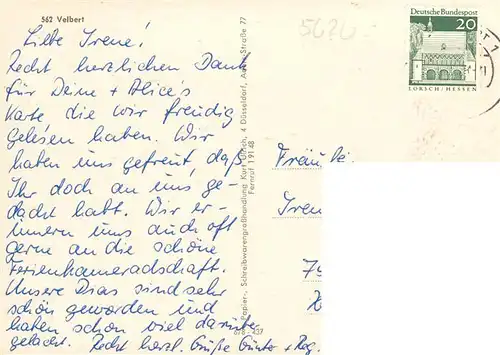 562 Velbert
Liebe Irene!
Recht herzlichen Dank
für Deine + Alice's
Karte die wir freudig
gelesen haben. Wir
haben uns gefreut, daß
Ihr doch an uns ge-
dacht habt. Wir er-
innern uns auch oft
gerne an die schöne
Ferienkameradschaft.
Unsere Dias sind sehr
schön geworden und
haben schon viel darüber
gelacht. Recht herzl. Grüße Günter + Reg.
Papier-, Schreibwarengroßhandlung Kurt 4 Düsseldorf, Straße 77
Fernruf 1 91 48
678 - 437
Deutsche Bundespost
20
LORSCH / HESSEN
Fräulei
Iren